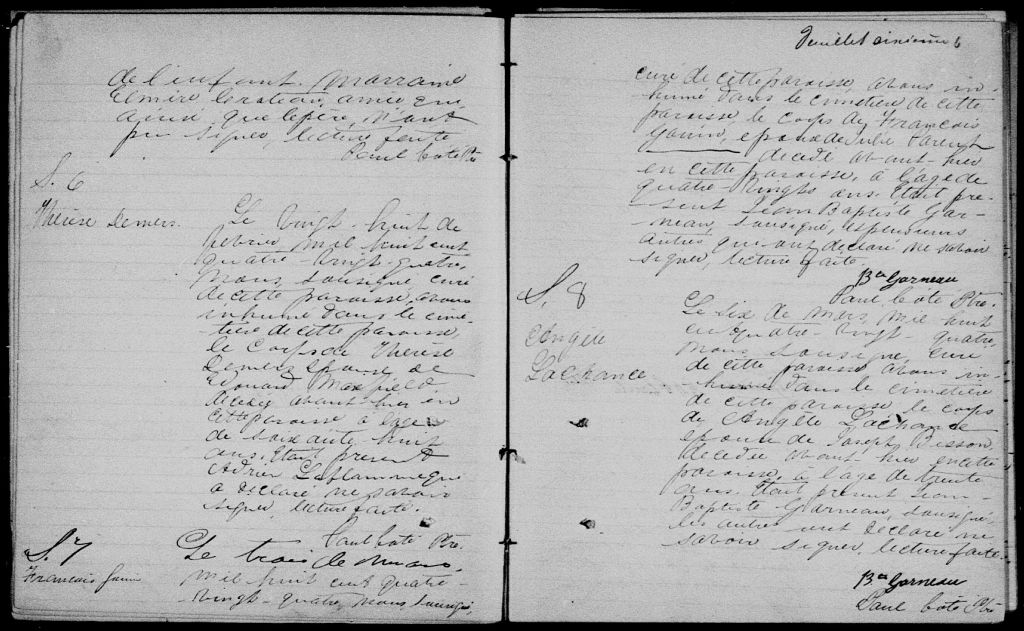 de l'enfant. Marraine
Elmire
ainsi que le père, n'ont
pu signer, lecture faite
Paul Coté Ptre
S. 6
Thérèse Demers.
Le vingt-huit de
fevrier mil huit cent
quatre-vingt-quatre,
Nous, sousigné, curé
de cette paroisse, avons
inhumé dans le cime-
tière de cette paroisse,
le corps de Thérèse
Demers épouse de
Edouard Maxfield
décédée avant-hier en
cette paroisse à l'age
de soixante-huit
ans. Etait présent
Adrien Laflamme qui
a déclaré ne savoir
signer, lecture faite.
Paul Coté Ptre.
S. 7
François
Le trois de mars,
mil huit cent quatre-
-vingt-quatre, Nous sousigné,
Feuillet sixieme 6
curé de cette paroisse, avons in-
humé dans le cimetiere de cette
paroisse le corps de François
époux de Julie Parent
décédé avant-hier
en cette paroisse, à l'age de
quatre-vingts ans. Etait pre-
sent Jean Baptiste Gar-
neau, sousigné, et plusieurs
autres qui ont declaré ne savoir
signer, lecture faite.
Bte Garneau
Paul Coté Ptre.
S. 8
Angèle
Lachance
Le six de mars, mil huit
cent quatre-vingt-quatre,
Nous sousigné, curé
de cette paroisse avons in-
humé dans le cimetiere
de cette paroisse le corps
de Angèle Lachance
épouse de Joseph Bisson
décédée avant-hier en cette
paroisse, à l'age de trente
ans. Etait present Jean-
Baptiste Garneau, sousigné,
les autres ont déclaré ne
savoir signer, lecture faite.
Bte Garneau
Paul Coté Ptre